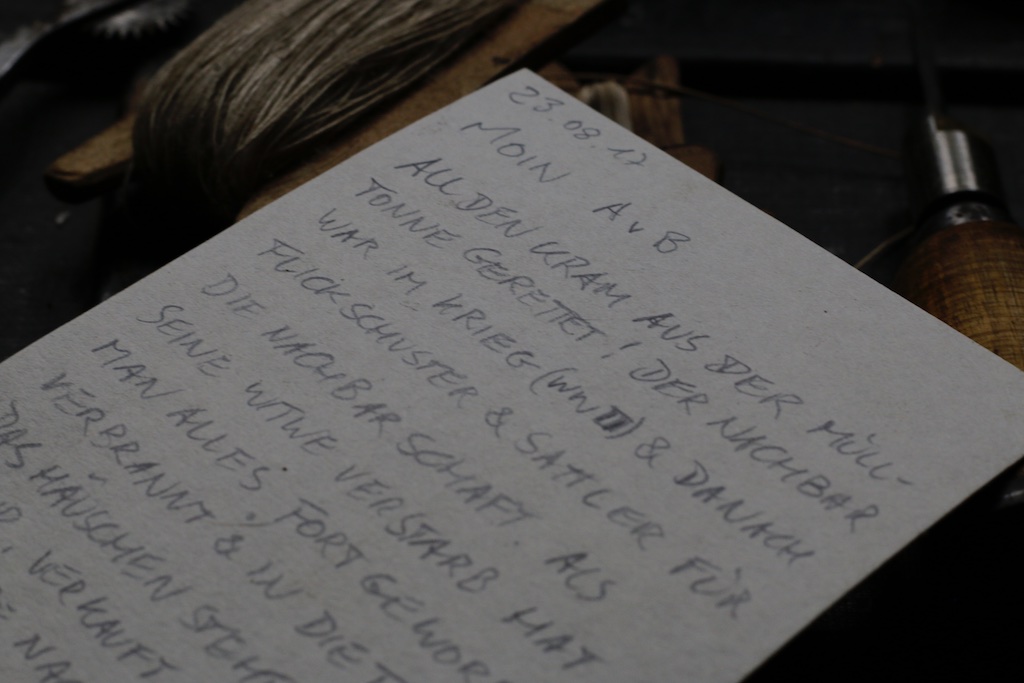 23.08.17
MOIN AvB
ALL DEN KRAM AUS DER MÜLL-
TONNE GERETTET! DER NACHBAR
WAR IM KRIEG (WWII) & DANACH
FLICKSCHUSTER & SATLER FÜR
DIE NACHBARSCHAFT. ALS
SEINE WITWE VERSTARB HAT
MAN ALLES FORTGEWOR
VERBRANNT & IN DIE T
DAS HÄUSCHEN STEHT
VERKAUFT